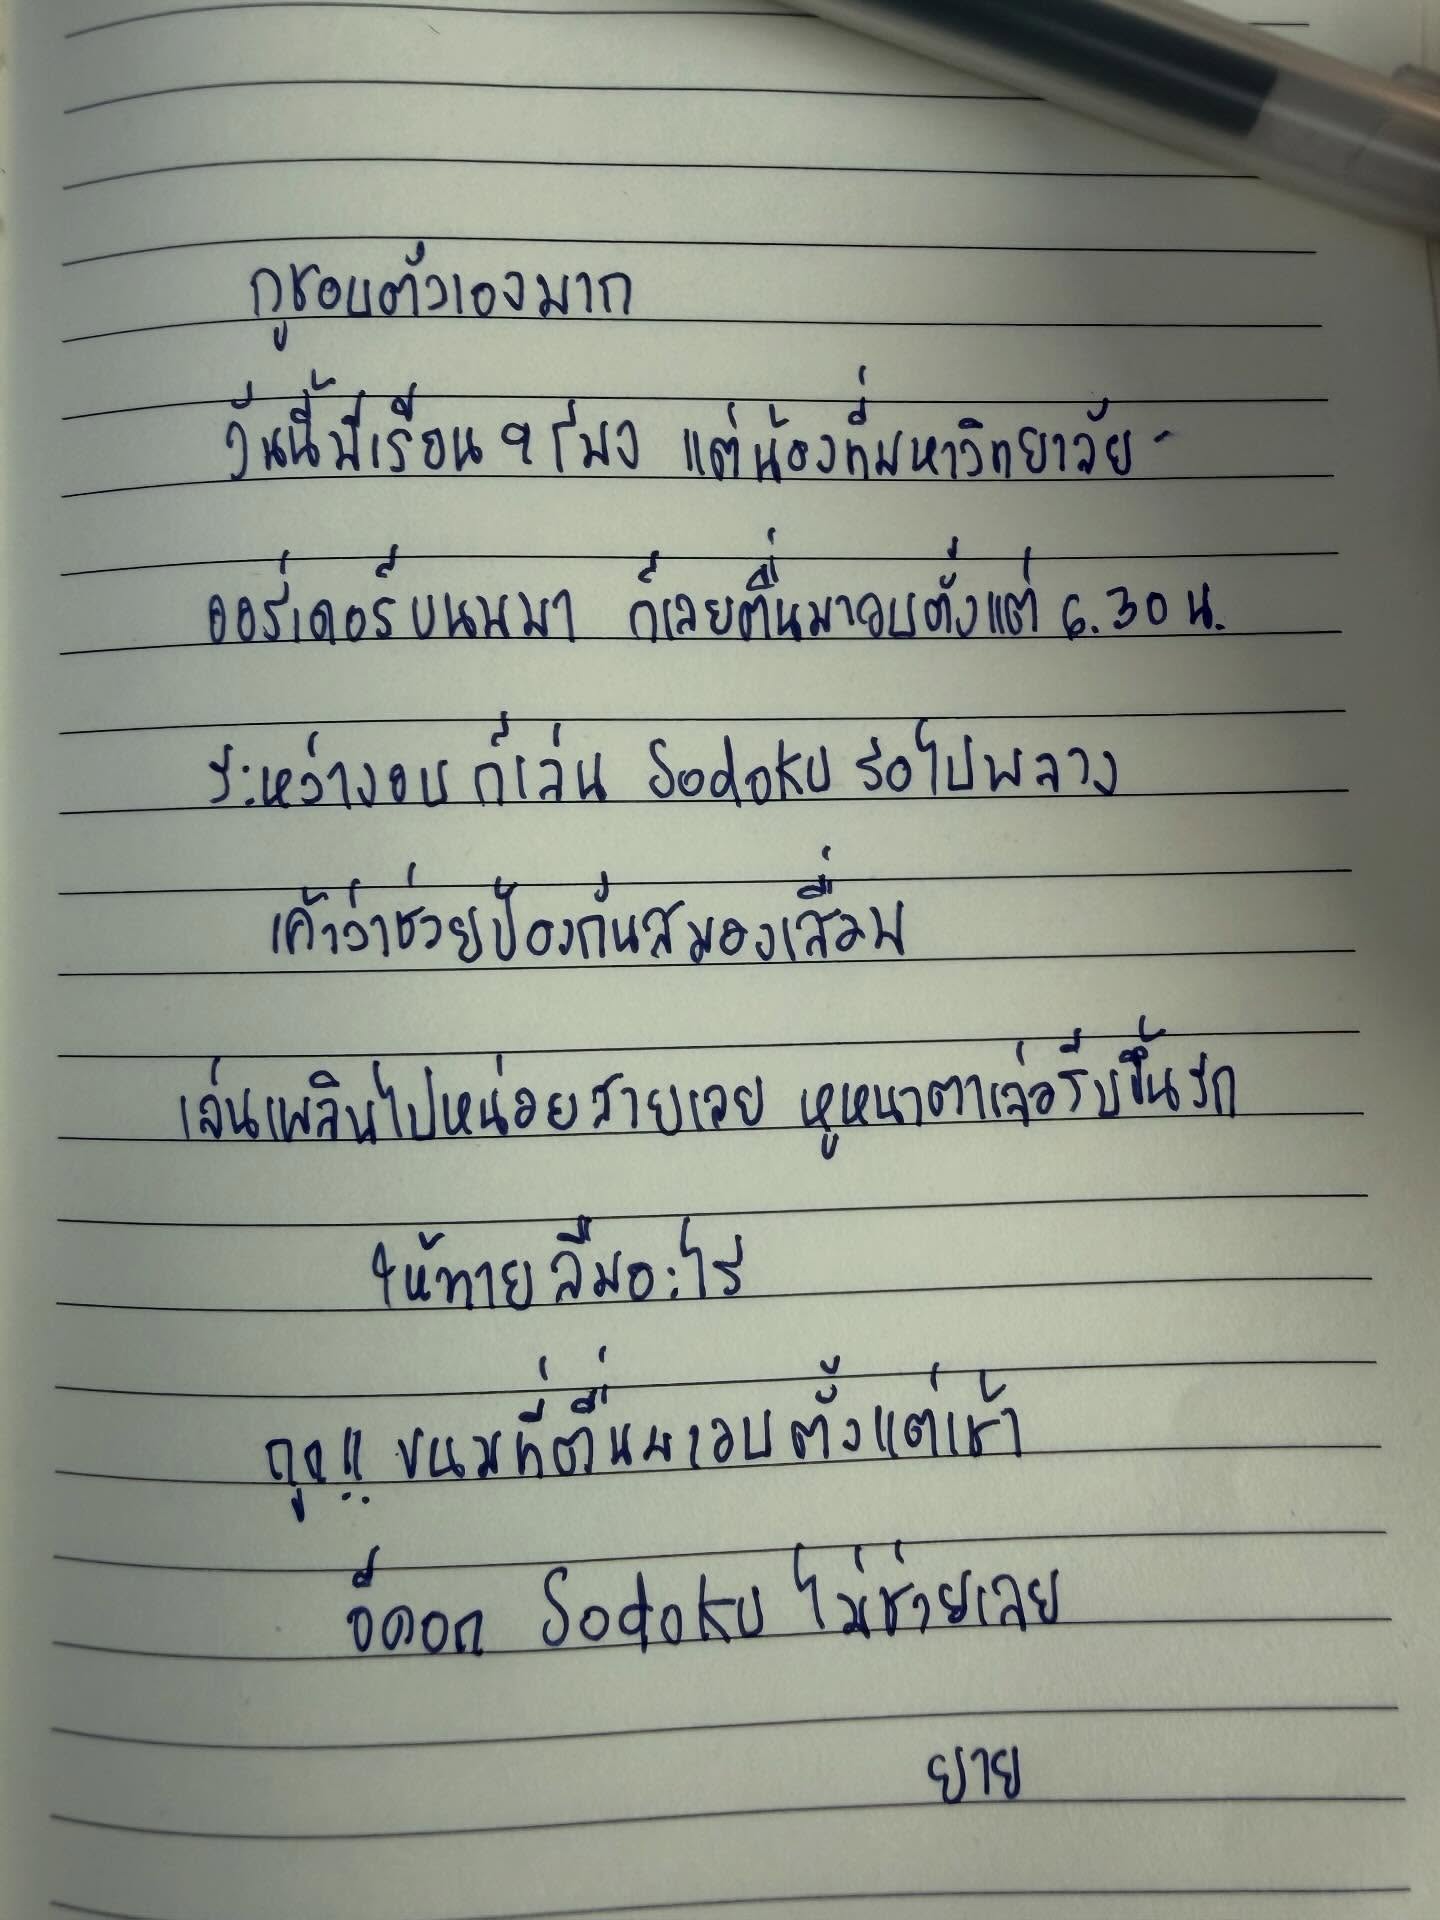 กูชอบตัวเองมาก
วันนี้มีเรียน 9 โมง แต่น้องที่มหาวิทยาลัย -
ออร์เดอร์ขนมมา ก็เลยตื่นมาอบตั้งแต่ 6.30 น.
ระหว่างอบ ก็เล่น Sodoku รอไปพลาง
เค้าว่าช่วยป้องกันสมองเสื่อม
เล่นเพลินไปหน่อยสายเลย หูหนาตาเล่อรีบขึ้นรถ
ให้ทายลืมอะไร
ถูก!! ขนมที่ตื่นมาอบตั้งแต่เช้า
อีดอก Sodoku ไม่ช่วยเลย
ยาย